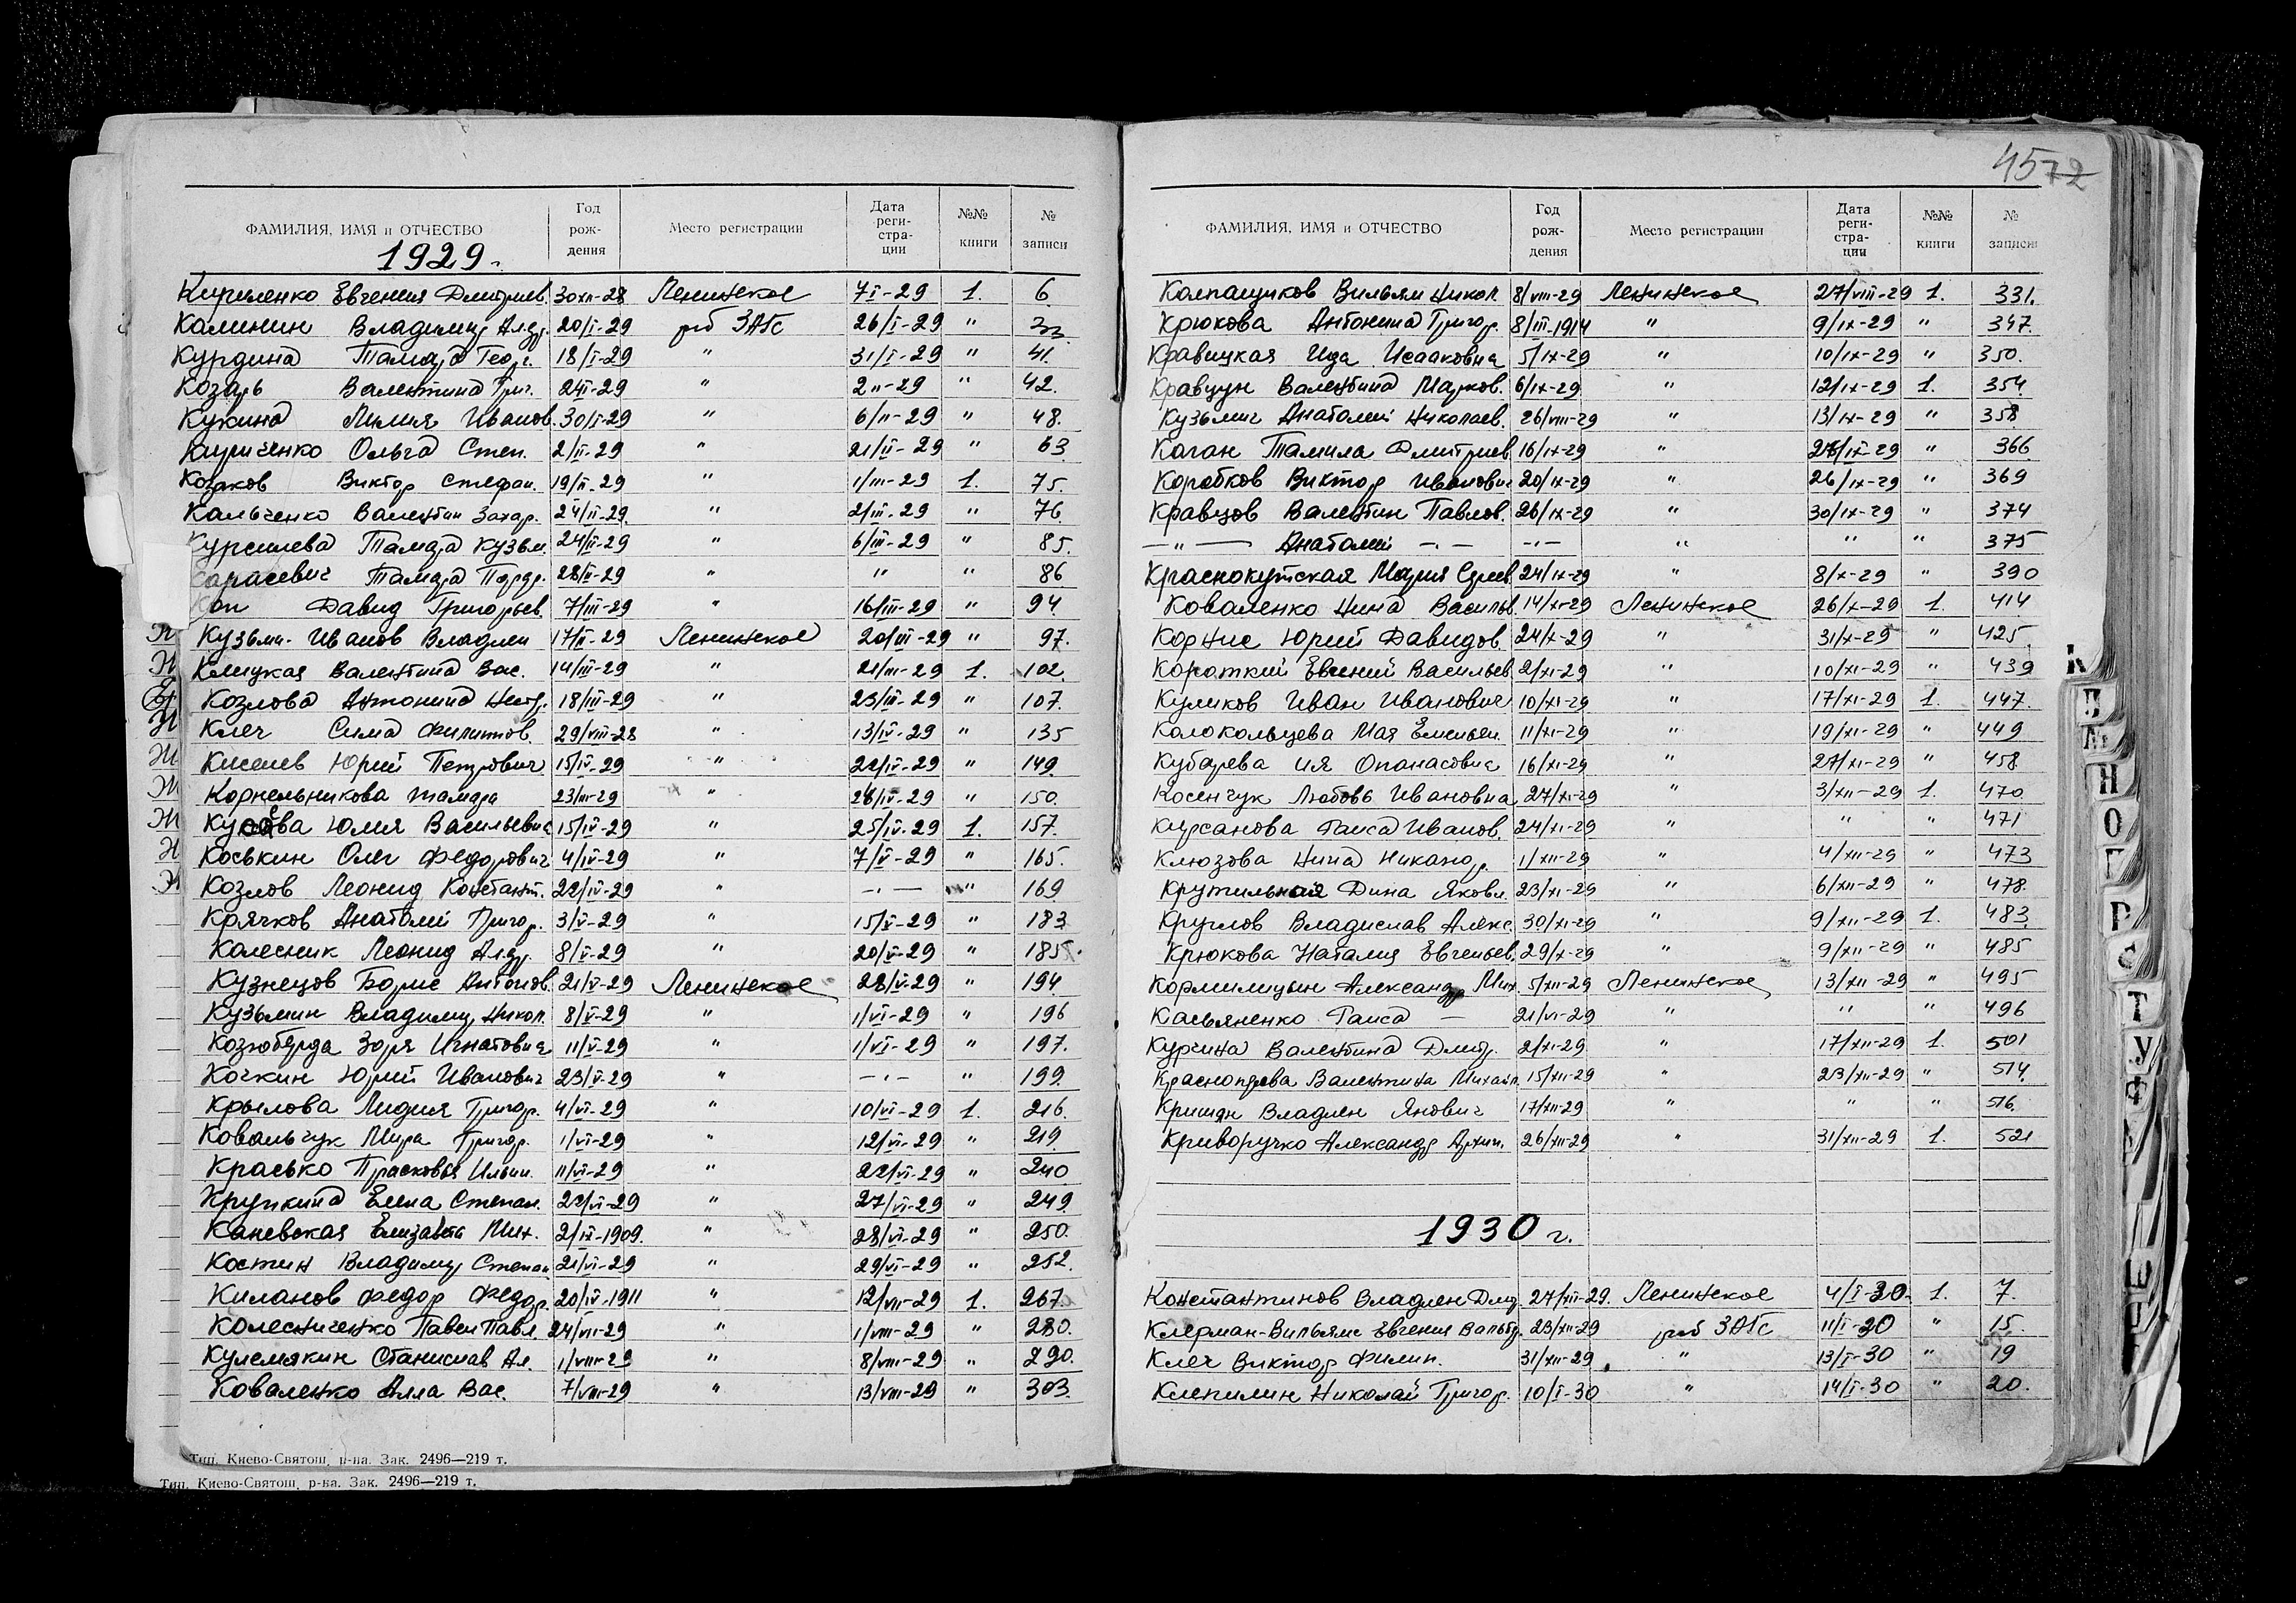 4572
ФАМИЛИЯ, ИМЯ и ОТЧЕСТВО Год рождения Место регистрации Дата регистрации №№ книги № записи
1929 г.
Кириленко Евгения Дмитриев. 30/XII-28 Ленинское 7/I-29 1. 6.
Калинин Владимир Ал-др. 20/I-29 рай ЗАГС 26/I-29 " 33.
Курдина Тамара Геор. 18/I-29 " 31/I-29 " 41.
Козарь Валентина Григ. " 2/II-29 " 42.
Кукина Лилия Иванов. 30/I-29 " 6/II-29 " 48.
Кириченко Ольга Степ. 2/II-29 " 21/II-29 " 63
Козаков Виктор Стефан. 19/II-29 " 1/III-29 1. 75.
Кальченко Валентин Захар. 24/II-29. " 2/III-29 " 76.
Тамара Кузьм. 24/II-29 " 6/III-29 " 85.
Тамара 28/II-29 " " " 86
Давид Григорьев. 7/III-29 " 16/III-29 " 94
Кузьми-Иванов Владлен 17/II-29 Ленинское 20/III-29 " 97.
Клицкая Валентина Вас. 14/III-29 " 21/III-29 1. 102.
Козлова Антонина 18/III-29 " 23/III-29 " 107.
Клеч Сима Филиппов. 29/VIII-28 " 13/IV-29 " 135
Киселев Юрий Петрович 15/IV-29 " 22/IV-29 " 149.
Корнельникова Тамара 23/III-29 " " 150.
Юлия Васильевна 15/IV-29 " 25/IV-29 1. 157.
Коськин Олег Федорович 4/IV-29 " 7/V-29 " 165.
Козлов Леонид Констант. 22/IV-29 " —"— " 169
Крячков Анатолий Григор. 3/V-29 " 15/V-29 " 183
Колесник Леонид Ал-др. 8/V-29 " 20/V-29 " 185.
Кузнецов Борис Антонов. 21/V-29 Ленинское 28/V-29 " 194
Кузьмин Владимир Никол. 8/V-29 " 1/VI-29 " 196
Козюберда Зоря Игнатовна 11/V-29 " 1/VI-29 " 197.
Кочкин Юрий Иванович 23/V-29 " —"— " 199.
Крылова Лидия Григор. 4/VI-29 " 10/VI-29 1. 216.
Ковальчук Мира Григор. 1/VI-29 " 12/VI-29 " 219.
Красько Прасковья Ильин. 11/VI-29 " 22/VI-29 " 240
Крупкина Елена Степан. 22/VI-29 " 27/VI-29 " 249.
Каневская Елизавета Мих. 2/IX-1909. " 28/VI-29 " 250.
Костин Владимир Степан 21/VI-29 " 29/VI-29 " 252.
Киланов Федор Федор. 20/IV-1911 " 12/VII-29 1. 267.
Колесниченко Павел Павл. 24/VII-29 " 1/VIII-29 " 280.
Кулемякин Станислав Ал. 1/VIII-29 " 8/VIII-29 " 290.
Коваленко Алла Вас. 7/VIII-29 " 13/VIII-29 " 303.
Тип. Киево-Святош. р-на. Зак. 2496—219 т.
Тип. Киево-Святош. р-на. Зак. 2496—219 т.
ФАМИЛИЯ, ИМЯ и ОТЧЕСТВО Год рождения Место регистрации Дата регистрации №№ книги № записи
Колпащиков Вильям Никол. 8/VIII-29 Ленинское 27/VIII-29 1. 331.
Крюкова Антонина Григор. 8/III-1914 " 9/IX-29 " 347.
Кравицкая Ида Исааковна 5/IX-29 " 10/IX-29 " 350.
Кравцун Валентина Марков. 6/IX-29 " 12/IX-29 1. 354.
Кузьмич Анатолий Николаев. 26/VIII-29 " 13/IX-29 " 358
Коган Тамила Дмитриев. 16/IX-29 " " 366
Коробков Виктор Иванович 20/IX-29 " 26/IX-29 " 369
Кравцов Валентин Павлов. 26/IX-29 " 30/IX-29 " 374
—"— Анатолий —"— —"— " " " 375
Краснокутская Мария 24/IX-29 " 8/X-29 " 390
Коваленко Нина Васильев. Ленинское 26/X-29 1. 414
Корние Юрий Давидов. 24/X-29 " 31/X-29 " 425
Короткий Евгений Васильев. 2/XI-29 " 10/XI-29 " 439
Куликов Иван Иванович 10/XI-29 " 17/XI-29 1. 447.
Колокольцева Мая Емельян. 11/XI-29 " 19/XI-29 " 449
Кубарева Ия Опанасовна 16/XI-29 " 27/XI-29 " 458
Косенчук Любовь Ивановна 27/XI-29 " 3/XII-29 1. 470
Кирсанова Раиса Иванов. 24/XI-29 " " " 471
Клюзова Нина Никанор. 1/XII-29 " 4/XII-29 " 473
Крутильная Дина Яковл. 23/XI-29 " 6/XII-29 " 478.
Круглов Владислав Алекс. 30/XI-29 " 9/XII-29 1. 483.
Крюкова Наталия Евгеньев. 29/X-29 " 9/XII-29 " 485
Кормилицын Александр Мих. 5/XII-29 Ленинское 13/XII-29 " 495
Касьяненко Раиса — 21/VI-29 " " " 496
Курчина Валентина Дмитр. 2/XI-29 " 17/XII-29 1. 501
Краснопёрова Валентина Михайл. 15/XII-29 " 23/XII-29 " 514.
Владлен Янович 17/XII-29 " " " 516.
Криворучко Александр Архип. 26/XII-29 " 31/XII-29 1. 521
1930 г.
Константинов Владлен Дмитр. 27/XII-29. Ленинское 4/I-30. 1. 7.
Клерман-Вильямс Евгения 23/XII-29 рай ЗАГС 11/I-30 " 15.
Клеч Виктор Филип. 31/XII-29 " 13/I-30 " 19
Клепилин Николай Григор. 10/I-30 " 14/I-30 " 20.
К
Л
М
Н
О
П
Р
С
Т
У
Ф